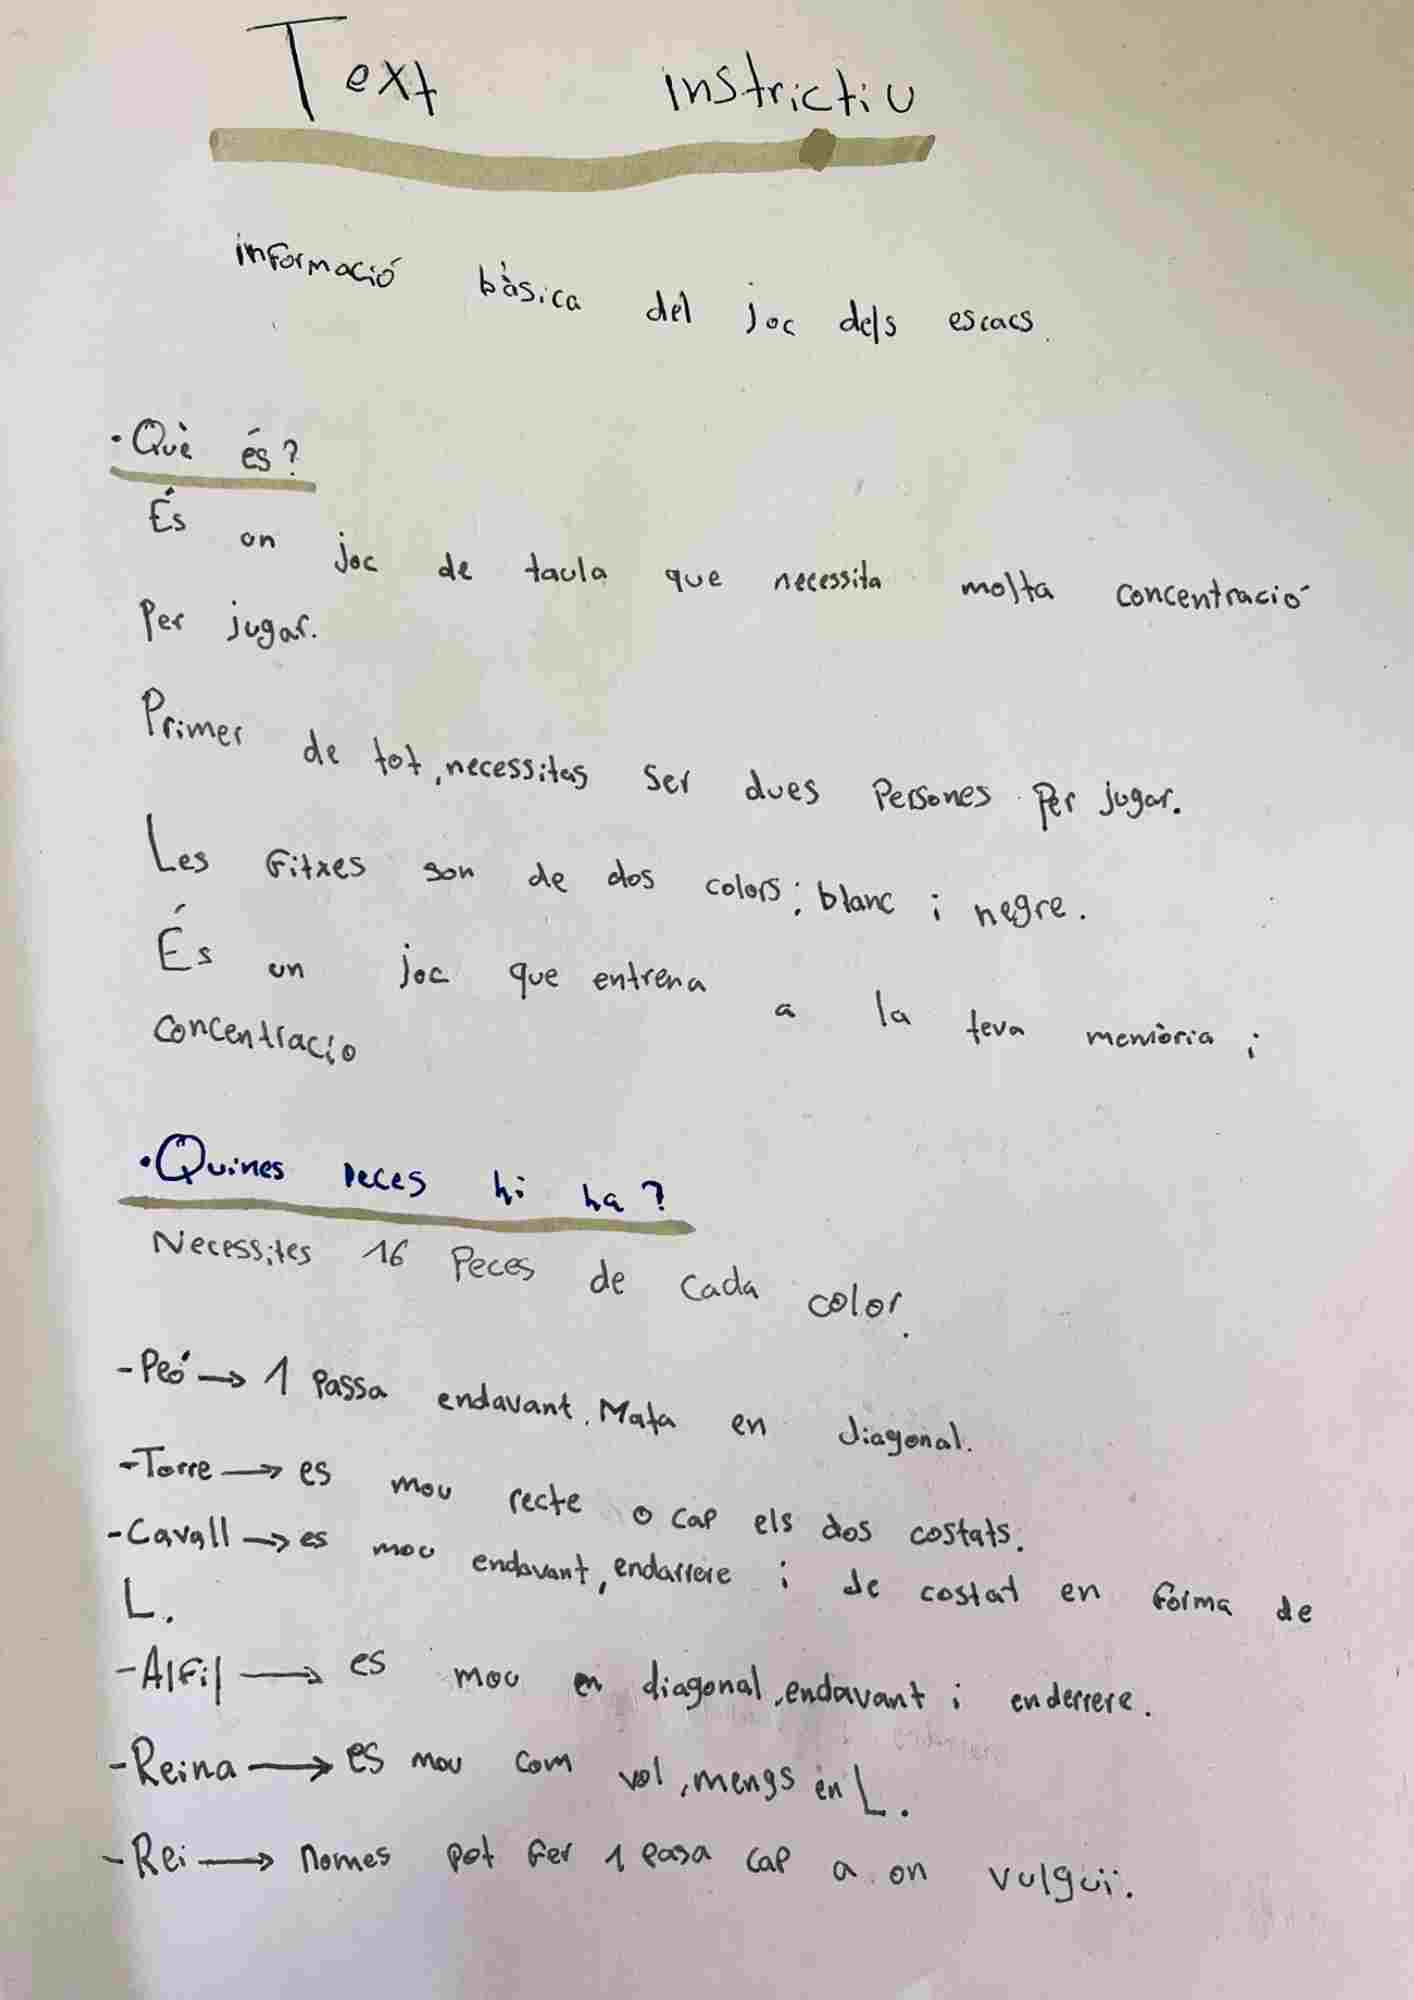 Text instrictiu
informació bàsica del joc dels escacs.
·Què és?
És un joc de taula que necessita molta concentració
Per jugar.
Primer de tot, necessitas ser dues Persones per jugar.
Les fitxes son de dos colors; blanc i negre.
És un joc que entrena a la teva memòria i
concentracio
·Quines peces hi ha?
Necessites 16 Peces de cada color.
-Peó → 1 passa endavant. Mata en diagonal.
-Torre → es mou recte o cap els dos costats.
-Cavall → es mou endavant, endarrere i de costat en forma de
L.
-Alfil → es mou en diagonal, endavant i enderrere.
-Reina → es mou com vol, mengs en L.
-Rei → nomes pot fer 1 pasa cap a on vulguï.